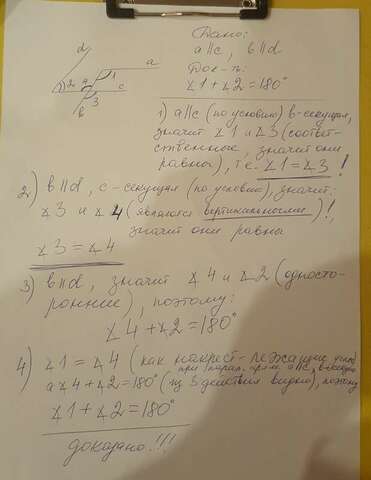 d
a
1
2
4
c
3
b
Дано:
a||c, b||d
Док-ть:
∠1+∠2=180°
1) a||c (по условию) b-секущая,
значит ∠1 и ∠3 (соответ-
ственные, значит они
равны), т.е. ∠1=∠3!
2) b||d, c-секущая (по условию), значит:
∠3 и ∠4 (являются вертикальными)!,
значит они равны
∠3=∠4
3) b||d, значит ∠4 и ∠2 (односто-
ронние), поэтому:
∠4+∠2=180°
4) ∠1=∠4 (как накрест-лежащие углы
при парал. прям. a||c, b-секущ
а ∠4+∠2=180° (из 3 действия видно), поэтому
∠1+∠2=180°
доказано!!!